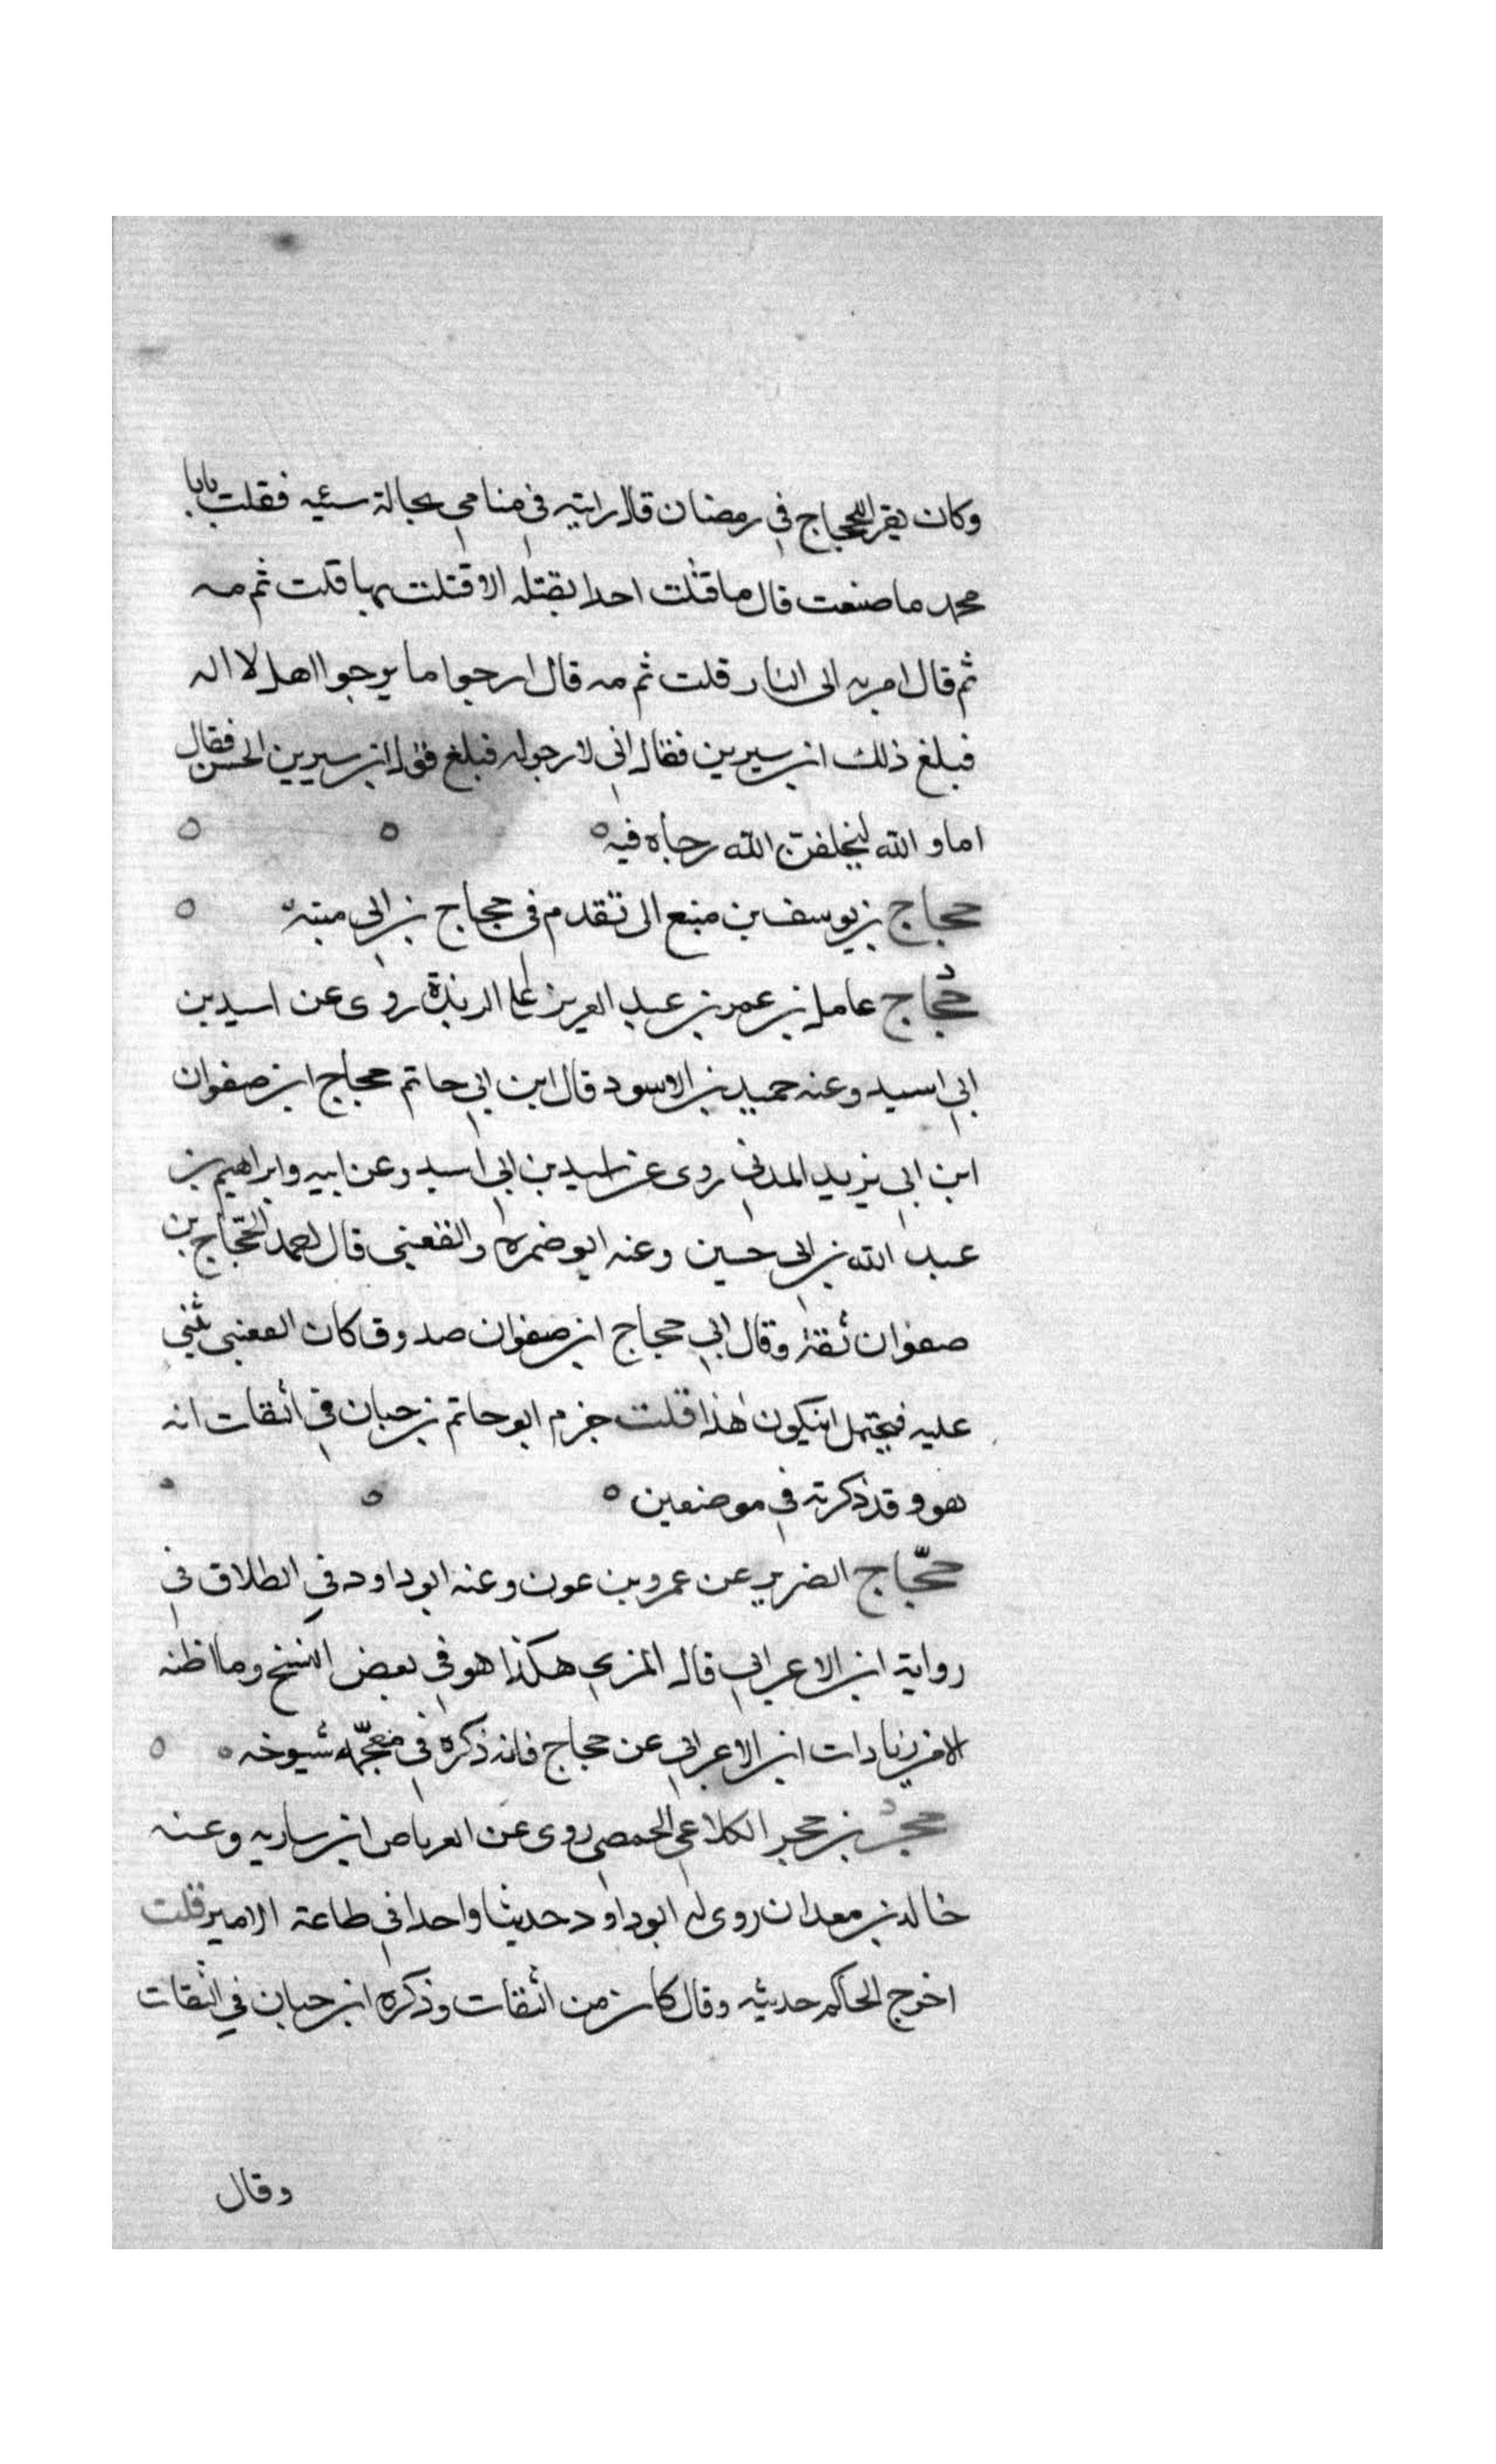 وكان يقرا للحجاج في رمضان قال رايته في منامي بحالة سيئه فقلت يابا
محمد ما صنعت قال ما قتلت احدا بقتله الا قتلت بها قلت ثم مه
ثم قال امر به الى النار قلت ثم مه قال ارجوا ما يرجوا اهل لا اله
فبلغ ذلك ابن سيرين فقال اني لارجوله فبلغ قول ابن سيرين الحسن فقال
اما و الله ليخلفن الله رجاه فيه
حجاج بن يوسف بن منيع الى تقدم في حجاج بن ابي منيه
حجاج عامل بن عمر بن عبد العزيز على الربذة روى عن اسيد بن
ابي اسيد وعنه حميد بن الاسود قال ابن ابي حاتم حجاج ابن صفوان
ابن ابي يزيد المدني روى عن اسيد بن ابي اسيد وعن ابيه وابراهيم بن
عبد الله بن ابي حسين وعنه ابو ضمره والقعنبي قال احمد الحجاج بن
صفوان ثقة وقال ابي حجاج ابن صفوان صدوق كان القعنبي يثني
عليه فيحتمل ان يكون هذا قلت جزم ابو حاتم بن حبان في الثقات انه
هو و قد ذكرته في موضعين
حجّاج الضرير عن عمرو بن عون وعنه ابو داود في الطلاق في
رواية ابن الاعرابي قاله المزي هكذا هو في بعض النسخ وما اظنه
الا من زيادات ابن الاعرابي عن حجاج فانه ذكره في معجمه شيوخه
حجر بن حجر الكلاعي الحمصي روى عن العرباض ابن ساريه وعنه
خالد بن معدان روى له ابو داود حديثا واحدا في طاعة الامير قلت
اخرج الحاكم حديثه وقال كان من الثقات وذكره ابن حبان في الثقات
وقال